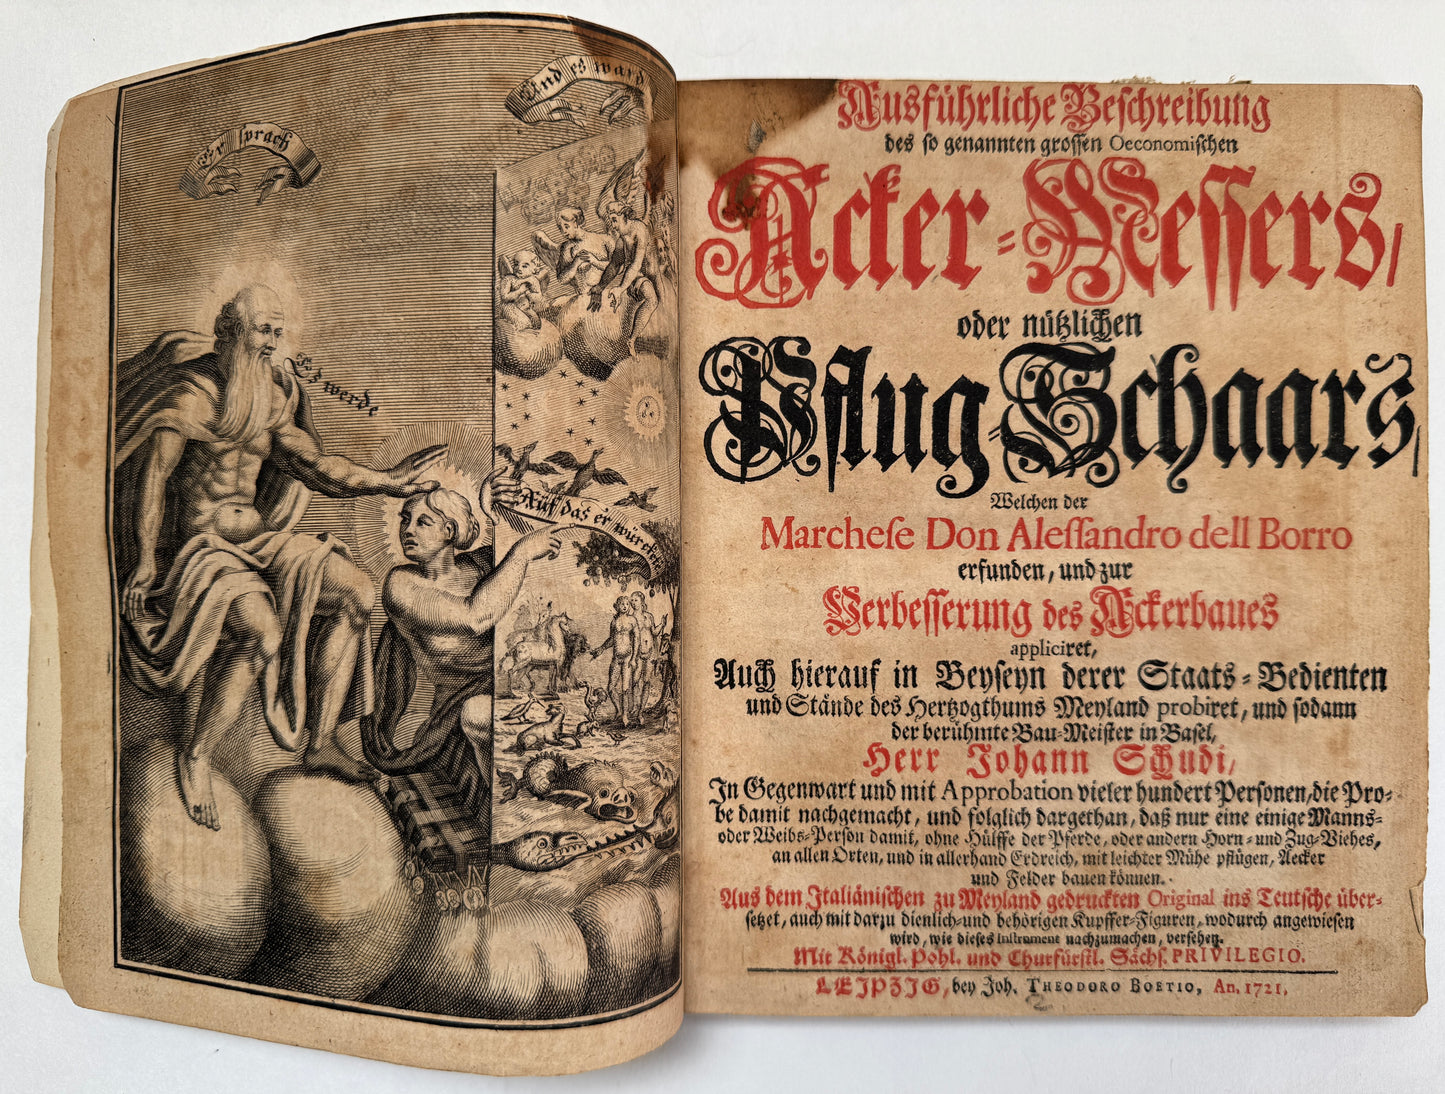 Er sprach
Und es ward
Es werde
Auf das er würcke
Ausführliche Beschreibung
des so genannten grossen Oeconomischen
Acker-Messers/
oder nützlichen
Pflug-Schaars/
Welchen der
Marchese Don Alessandro dell Borro
erfunden, und zur
Verbesserung des Ackerbaues
appliciret,
Auch hierauf in Beyseyn derer Staats-Bedienten
und Stände des Hertzogthums Meyland probiret, und sodann
der berühmte Bau-Meister in Basel,
Herr Johann Schudi,
In Gegenwart und mit Approbation vieler hundert Personen, die Pro-
be damit nachgemacht, und folglich dargethan, daß nur eine einige Manns-
oder Weibs-Person damit, ohne Hülffe der Pferde, oder andern Horn- und Zug-Viehes,
an allen Orten, und in allerhand Erdreich, mit leichter Mühe pflügen, Aecker
und Felder bauen können.
Aus dem Italiänischen zu Meyland gedruckten Original ins Teutsche über-
setzet, auch mit darzu dienlich- und behörigen Kupffer-Figuren, wodurch angewiesen
wird, wie dieses Instrument nachzumachen, versehen.
Mit Königl. Pohl. und Churfürstl. Sächs. PRIVILEGIO.
LEIPZIG, bey Joh. THEODORO BOETIO, An. 1721.